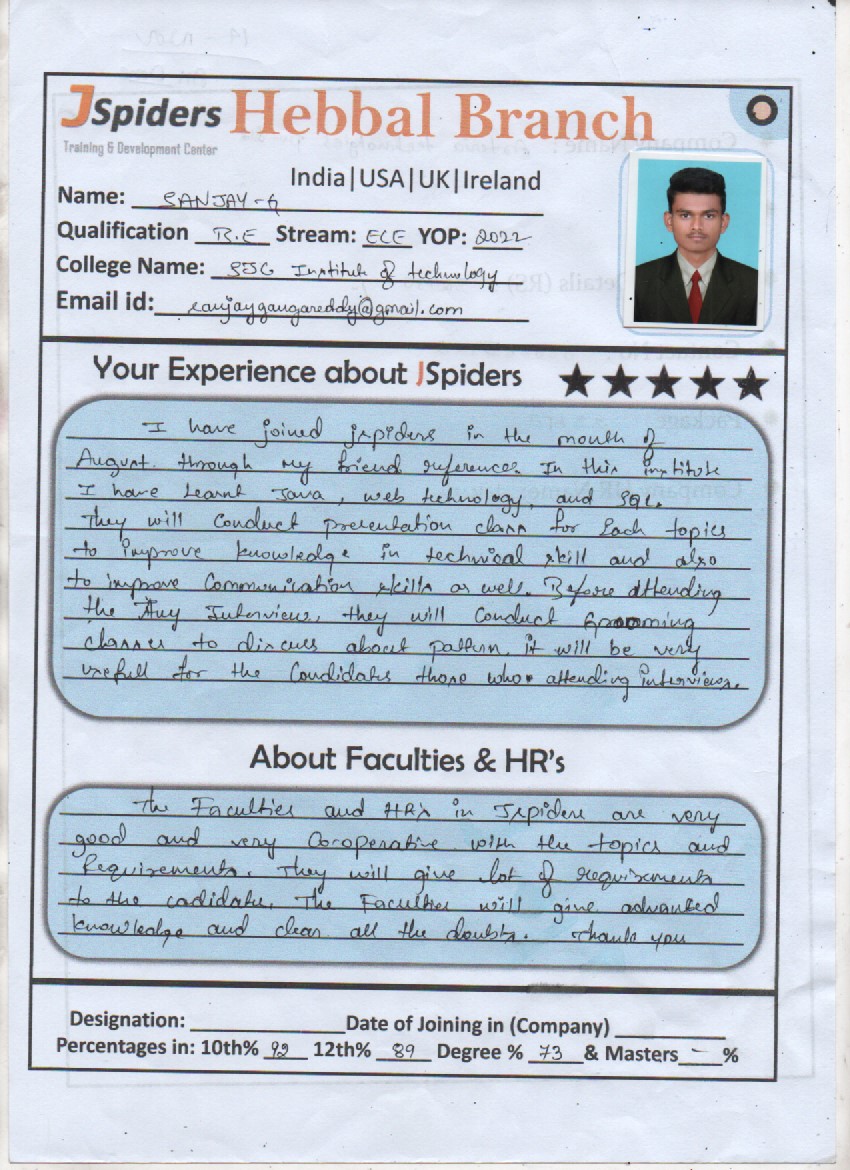 JSpiders Hebbal Branch
Training & Development Center
India|USA|UK|Ireland
Name: SANJAY-G
Qualification B.E Stream: ECE YOP: 2022
College Name: SJC Institute of technology
Email id: sanjaygangareddy@gmail.com
Your Experience about JSpiders
I have joined jspiders in the month of
August. through my friend references. In this institute
I have Learnt Java, web technology, and SQL.
They will Conduct presentation class for Each topics
to improve knowledge in technical skill and also
to improve Communication skills as well. Before attending
the Any Interviews, they will Conduct Grooming
classes to discuss about pattern. it will be very
usefull for the Candidates those who attending interviews.
About Faculties & HR's
The Faculties and HR's in Jspiders are very
good and very Co-operative with the topics and
Requirements. They will give lot of requirements
to the cadidate. The Faculties will give advanted
knowledge and clear all the doubts. Thank you
Designation: Date of Joining in (Company)
Percentages in: 10th% 92 12th% 89 Degree % 73 & Masters - %